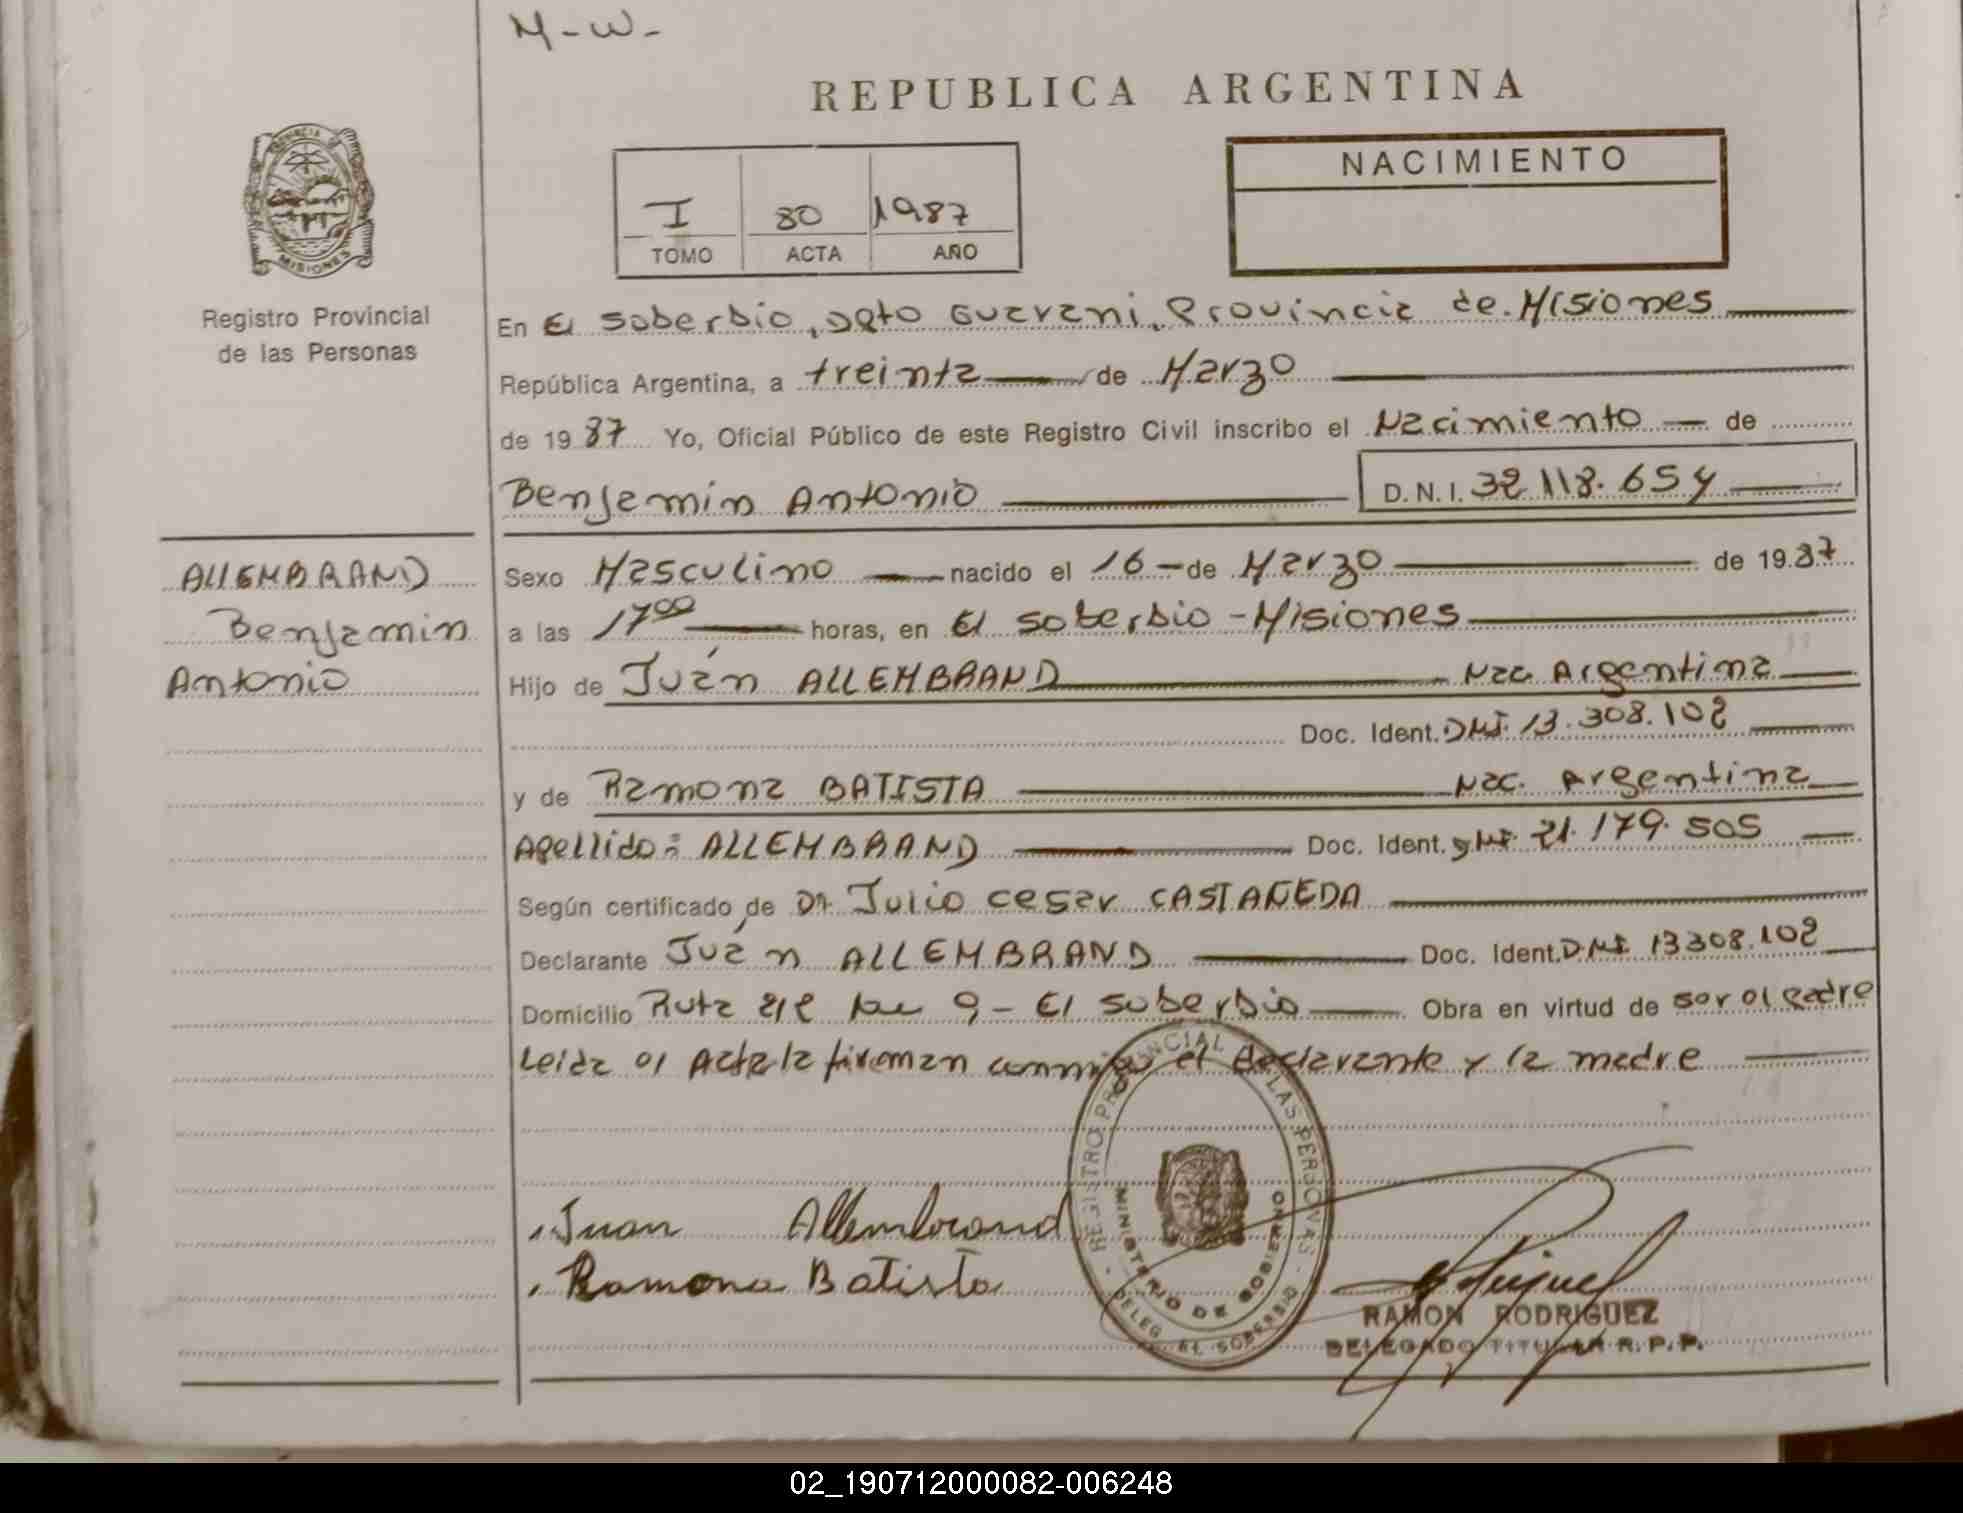 M-W-
REPUBLICA ARGENTINA
PROVINCIA DE
MISIONES
NACIMIENTO
I 80 1987
TOMO ACTA AÑO
Registro Provincial
de las Personas
En El Soberbio, Dpto Guarani, Provincia de Misiones
República Argentina, a treinta de Marzo
de 1987 Yo, Oficial Público de este Registro Civil inscribo el Nacimiento de
Benjamin Antonio D.N.I. 32 118.654
ALLEMBRAND
Benjamin
Antonio
Sexo Masculino nacido el 16 de Marzo de 1987
a las 17 00 horas, en El Soberbio - Misiones
Hijo de Juán ALLEMBRAND Nac. Argentina
Doc. Ident. DNI. 13.308.102
y de Ramona BATISTA Nac. Argentina
Apellido: ALLEMBRAND Doc. Ident. DNI 21.179.505
Según certificado de Dr. Julio Cesar CASTAÑEDA
Declarante Juán ALLEMBRAND Doc. Ident. DNI 13308.102
Domicilio Ruta 212 km 9 - El Soberbio Obra en virtud de ser el padre
Leida el Acta la firman conmigo el declarante y la madre
REGISTRO PROVINCIAL LAS PERSONAS
MINISTERIO DE GOBIERNO
DELEG. EL SOBERBIO
Juan Allembrand
Ramona Batista
RAMON RODRIGUEZ
DELEGADO TITULAR R.P.P.
02_190712000082-006248